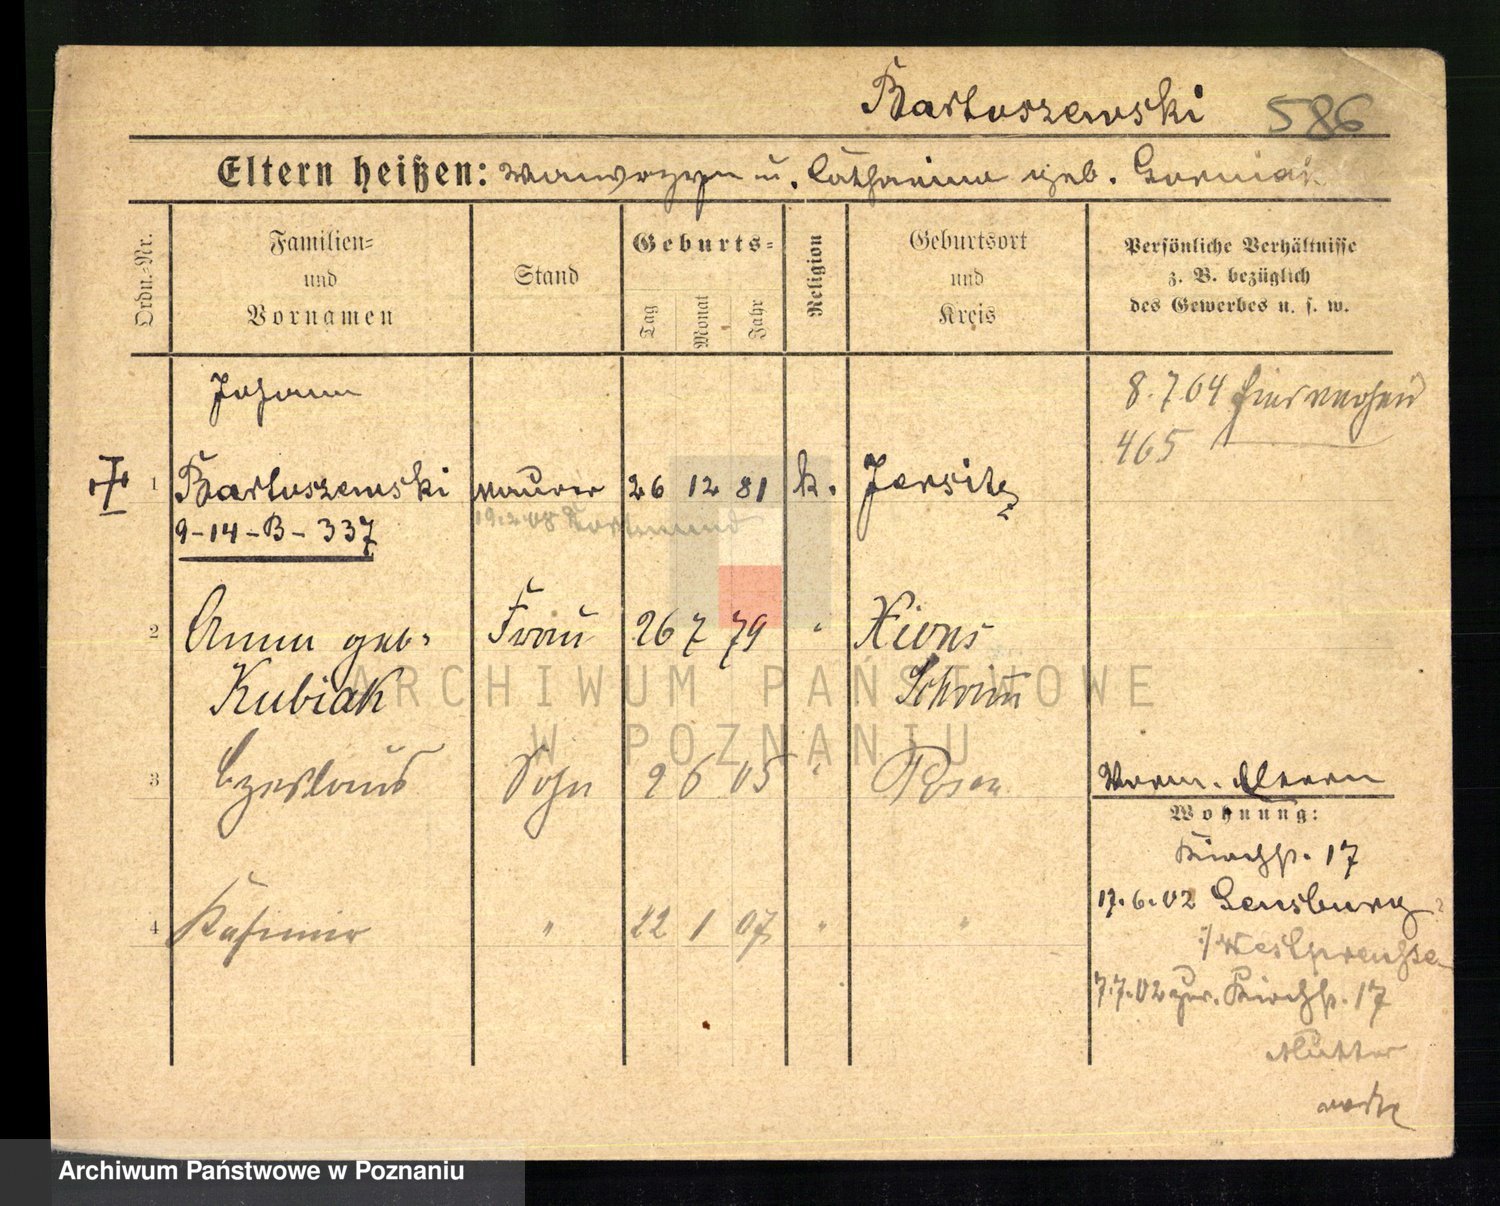 Bartuszewski 586
Eltern heißen: Wawrzyn u. Catharina geb. Gorniak
Ordn.-Nr.
Familien- und Vornamen
Stand
Geburts-
Tag Monat Jahr
Religion
Geburtsort und Kreis
Persönliche Verhältnisse
z. B. bezüglich
des Gewerbes u. s. w.
Johann
8.7.04
465
1 Bartuszewski Maurer 26 12 81 k. Jersitz
9-14-B-337 19.2.08 Dortmund
2 Anna geb. Frau 26 7 79 " Xions
Kubiak Schrimm
3 Czeslaus Sohn 2 6 05 " Posen
Vorm. Eltern
Wohnung:
Kirchstr. 17
17.6.02 Sensburg
4 Kasimir " 22 1 07 " "
Westpreußen
7.7.02 zur. Kirchstr. 17
Mutter
ARCHIWUM PAŃSTWOWE
W POZNANIU
Archiwum Państwowe w Poznaniu